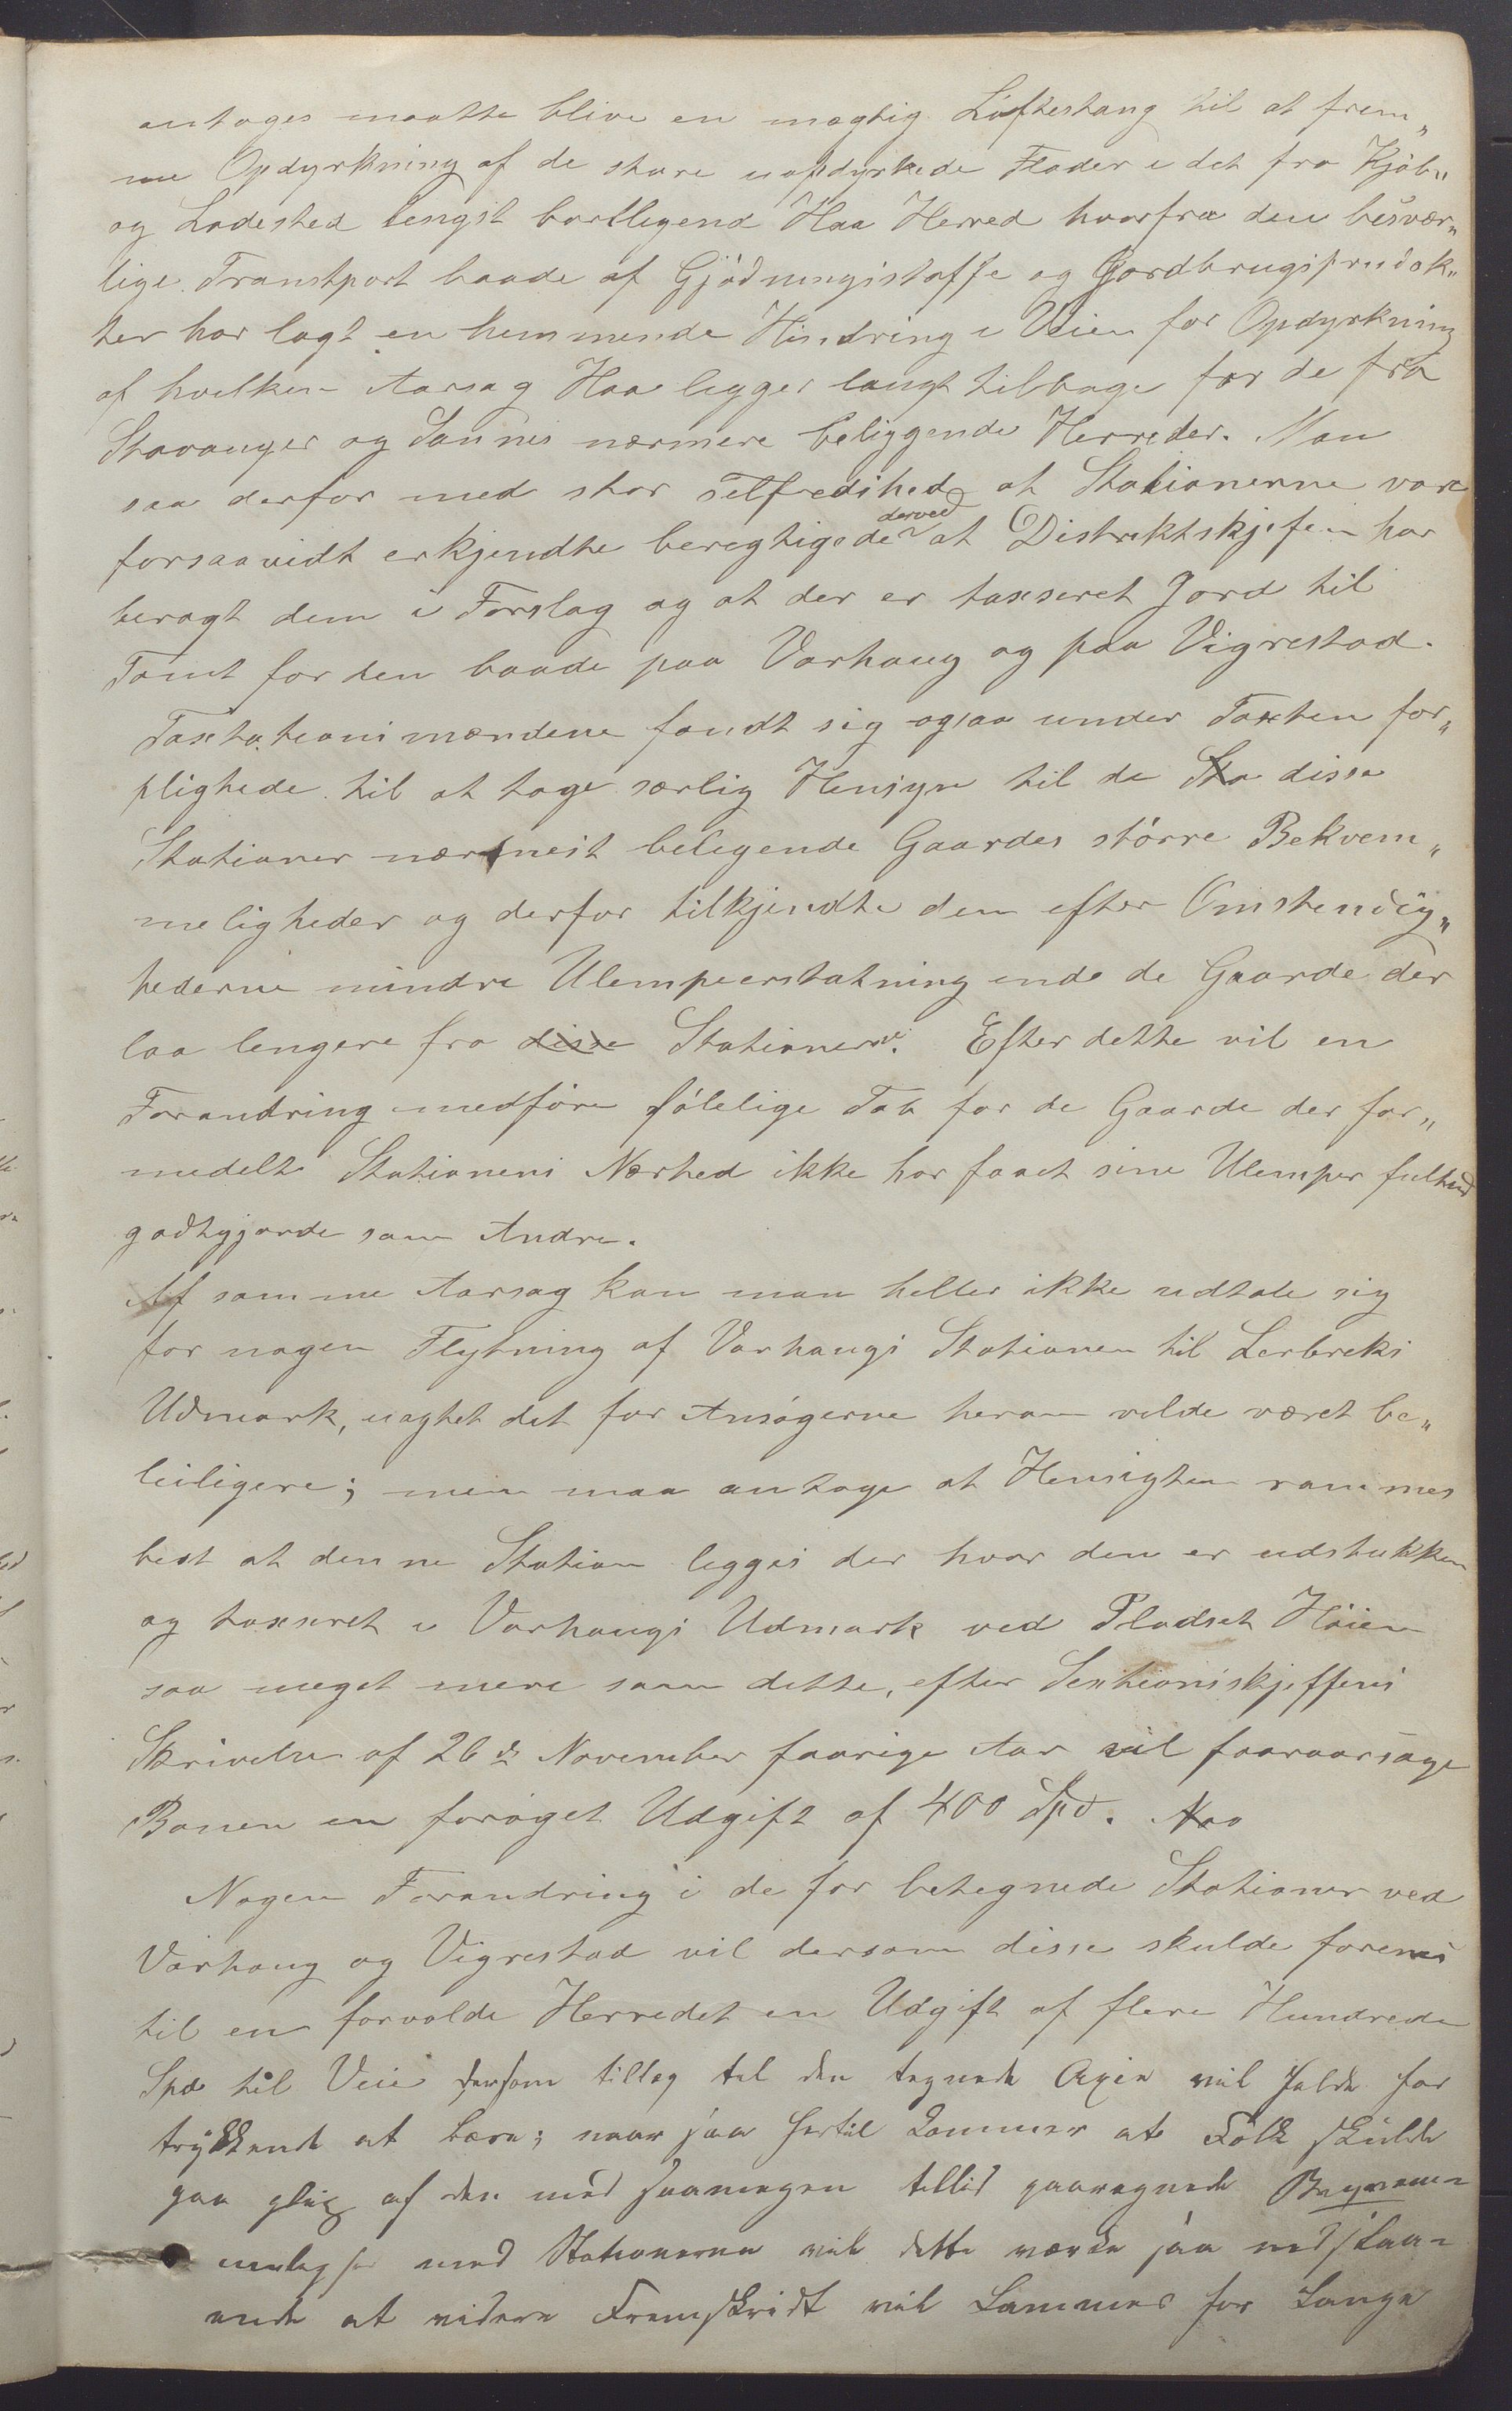 antages maatte blive en mægtig Löftestang til at frem„
me Opdyrkning af de store uopdyrkede Flader i det fra Kjöb„
og Ladested lengst bortlegend Haa Herred hvorfra den besvær„
lige Transtport baade af Gjödningsstoffe og Gjordbrugsprudok„
ter har lagt en hemmende Hindring i Veien for Opdyrkning
af hvilken Aarsag Haa legger langt tilbage for de fra
Stavanger og Sannes nærmere beliggende Herreder. Man
saa derfor med stor Telfredshed at Stationerne vare
forsaavidt erkjendte beregtigede derved at Distriktskjefen har
beragt dem i Forslag og at der er taxseret Jord til
Tomt for den baade paa Varhaug og paa Vigrestad.
Taxtationsmændene fandt sig ogsaa under Taxten for„
plightede til at tage særlig Hensyn til de Sta disse
Stationer nærmest belegende Gaardes större Bekvem„
meligheder og derfor tilkjendte dem efter Omstendig„
hederne mindre Ulempeerstatning ende de Gaarde der
laa lengere fra disse Stationerne. Efter dette vil en
Forandring medföre fölelige Tab for de Gaarde der for„
medelt Stationens Nærhed ikke har faaet sine Ulemper fultud
godtgjorde som Andre.
Af samme Aarsag kan man heller ikke udtale sig
for nogen Flytning af Varhaugs Stationen til Lerbreks
Udmark, uagtet det for Ansögerne herom vilde været be„
leiligere; men maa antage at Hensigten rammes
best at denne Station legges der hvor den er udstukken
og taxseret i Varhaugs Udmark ved Pladset Höien
saa meget mere som dette, efter Sextionskjeffens
Skrivelse af 26de November faarige Aar vil faaraarsage
Banen en foröget Udgift af 400 Spd. Naa
Nogen Forandring i de for betegnede Stationer ved
Varhaug og Vigrestad vil dersom disse skulde forenes
til en forvolde Herredet en Udgift af flere Hundrede
Spd til Veie dersom tilleg til den tegnede Axie vil falde for
trykkende at bære; naar saa hertil kommer at Folk skulde
gaa glip af den med saamegen tillid paaregnede
med Stationerne vil dette værke saa nedslaa-
ende at videre Fremskridt vil Lammes for Lange